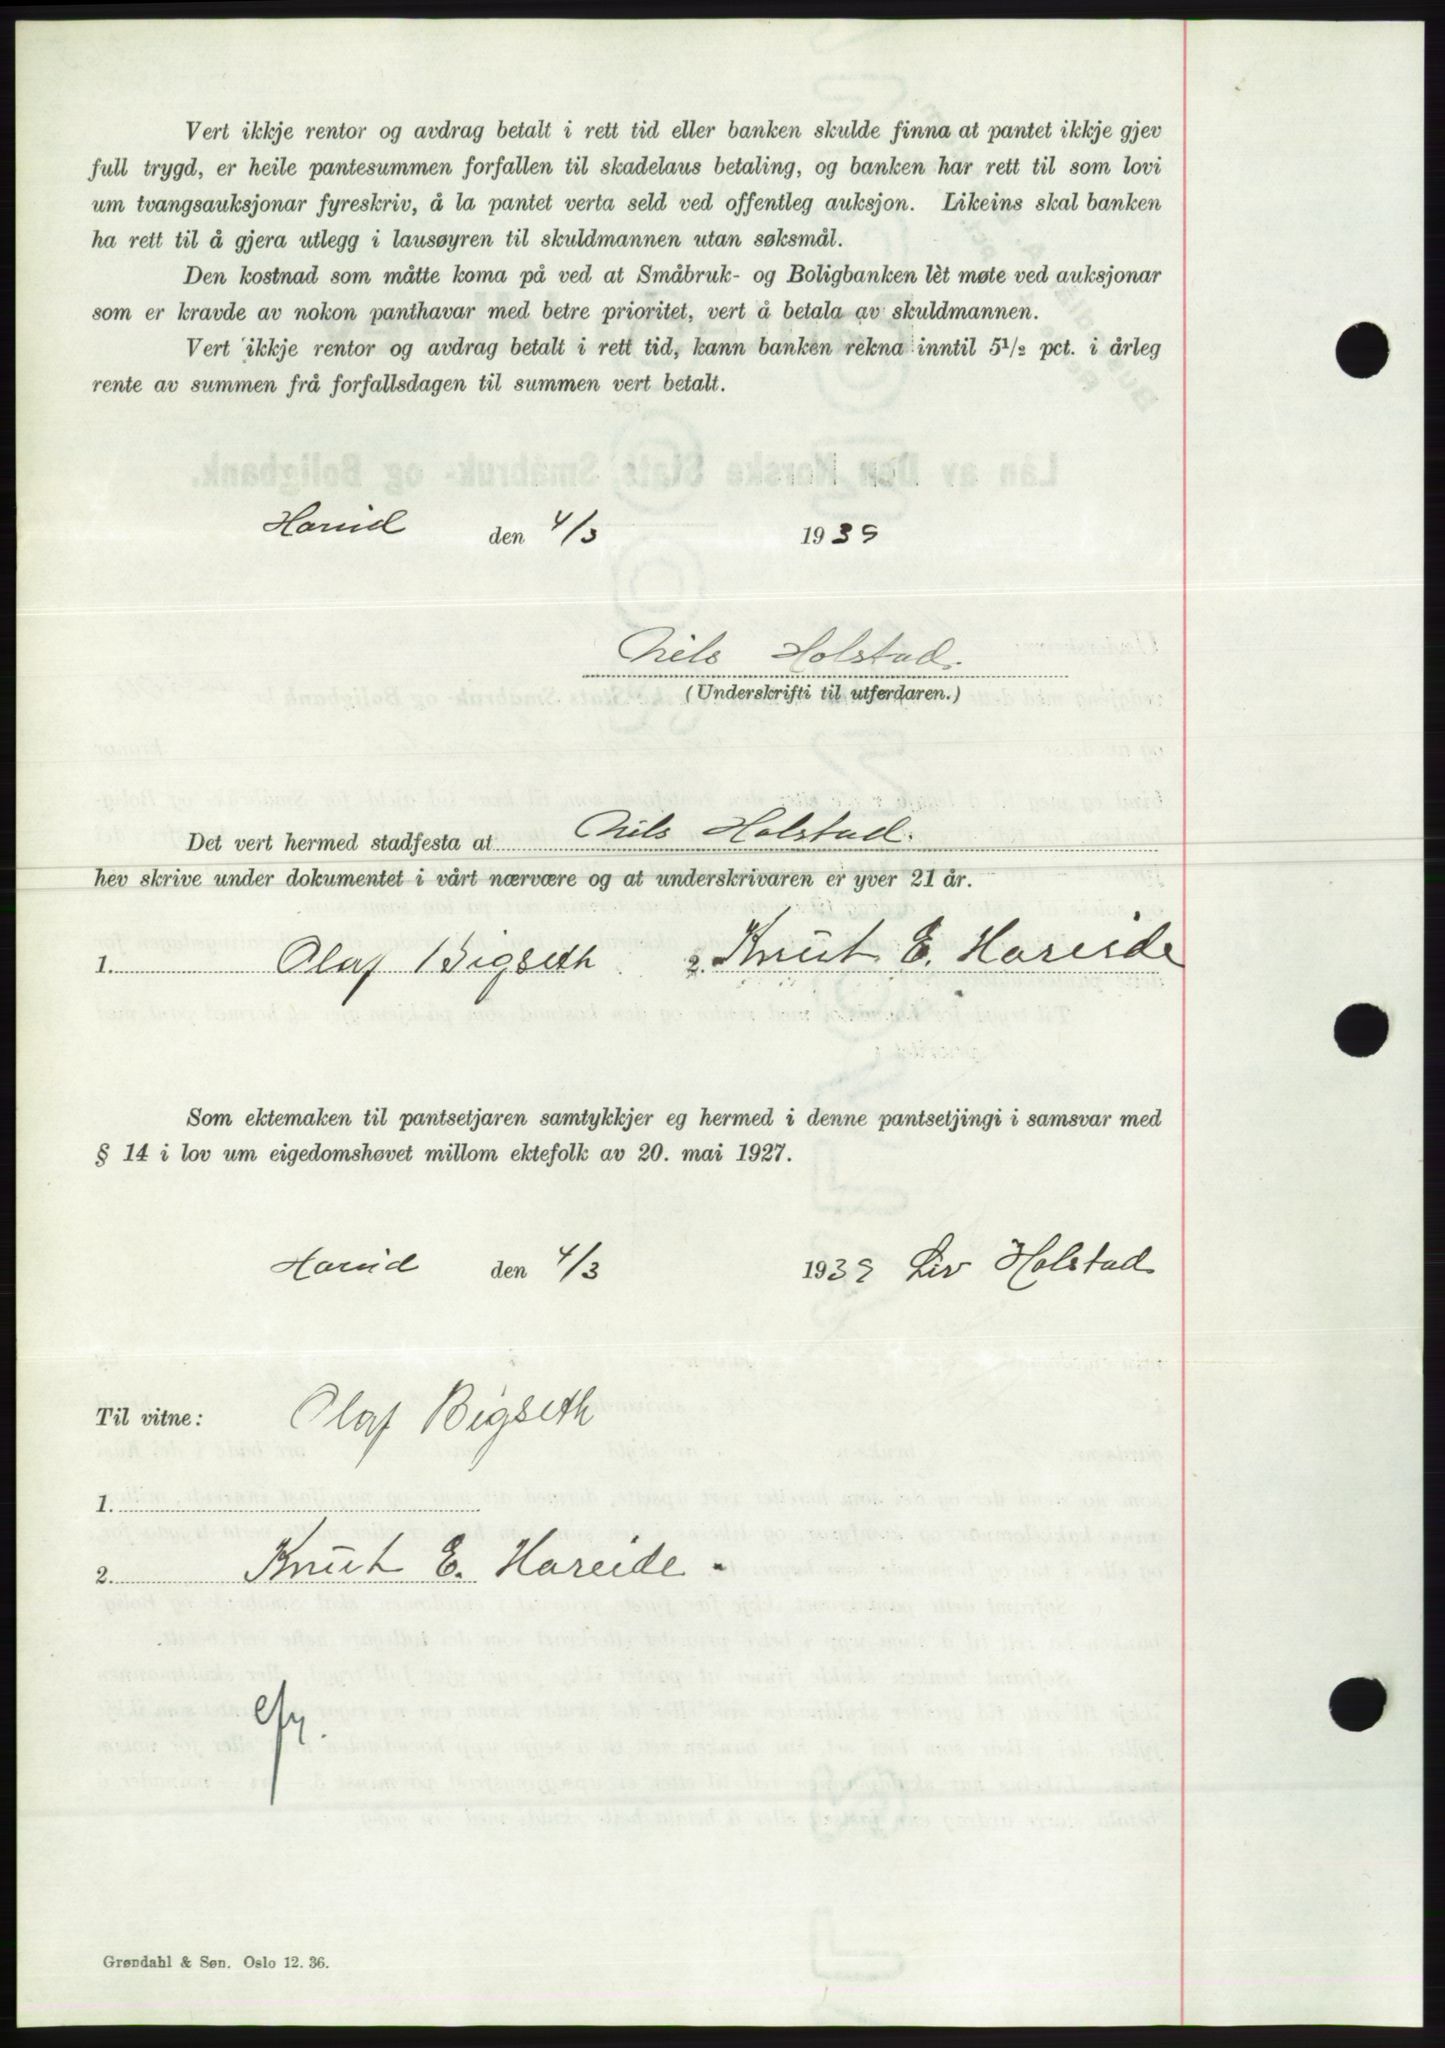 Vert ikkje rentor og avdrag betalt i rett tid eller banken skulde finna at pantet ikkje gjev
full trygd, er heile pantesummen forfallen til skadelaus betaling, og banken har rett til som lovi
um tvangsauksjonar fyreskriv, å la pantet verta seld ved offentleg auksjon. Likeins skal banken
ha rett til å gjera utlegg i lausøyren til skuldmannen utan søksmål.
Den kostnad som måtte koma på ved at Småbruk- og Boligbanken lèt møte ved auksjonar
som er kravde av nokon panthavar med betre prioritet, vert å betala av skuldmannen.
Vert ikkje rentor og avdrag betalt i rett tid, kann banken rekna inntil 5¹/₂ pct. i årleg
rente av summen frå forfallsdagen til summen vert betalt.
Lån av Den Norske Stats Småbruk- og Boligbank.
Hareid den 4/3 1939
Nils Holstad.
(Underskrifti til utferdaren.)
Det vert hermed stadfesta at Nils Holstad.
hev skrive under dokumentet i vårt nærvære og at underskrivaren er yver 21 år.
1. Olaf Bigseth 2. Knut E. Hareide
Som ektemaken til pantsetjaren samtykkjer eg hermed i denne pantsetjingi i samsvar med
§ 14 i lov um eigedomshøvet millom ektefolk av 20. mai 1927.
Hareid den 4/3 1939 Liv Holstad
Til vitne: Olaf Bigseth
1.
2. Knut E. Hareide
Grøndahl & Søn. Oslo 12. 36.